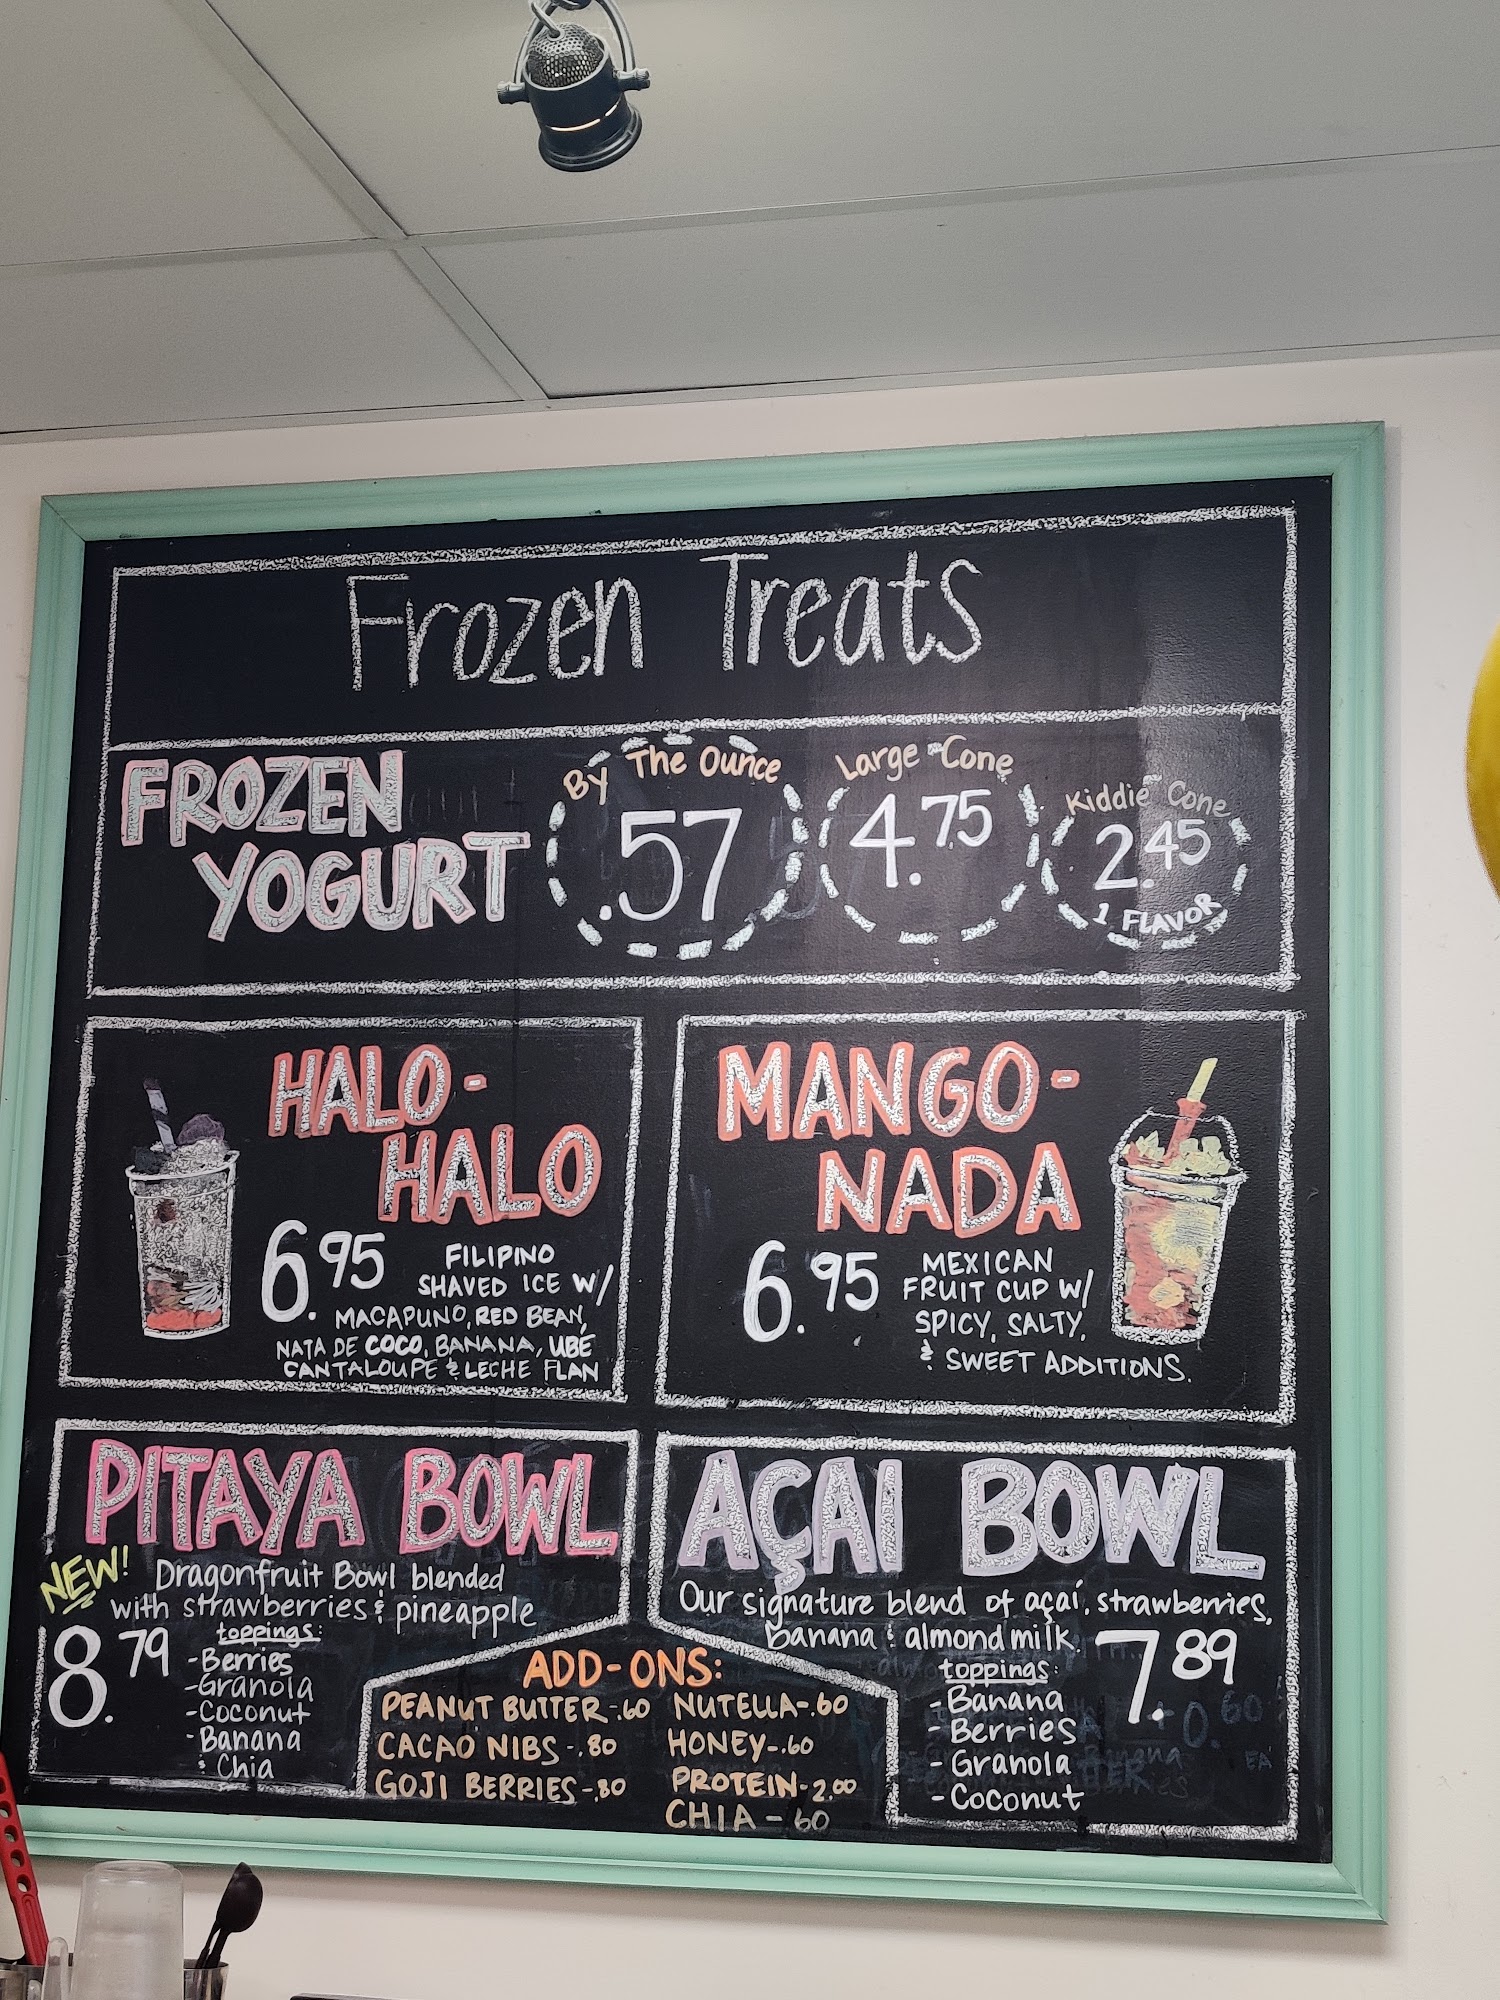 Frozen Treats
FROZEN
YOGURT
By The Ounce
.57
Large Cone
4.75
Kiddie Cone
2.45
1 FLAVOR
HALO-
HALO
6.95
FILIPINO
SHAVED ICE W/
MACAPUNO, RED BEAN,
NATA DE COCO, BANANA, UBE
CANTALOUPE & LECHE FLAN
MANGO-
NADA
6.95
MEXICAN
FRUIT CUP W/
SPICY, SALTY,
& SWEET ADDITIONS.
PITAYA BOWL
NEW!
Dragonfruit Bowl blended
with strawberries & pineapple
8.79
toppings:
-Berries
-Granola
-Coconut
-Banana
& Chia
AÇAI BOWL
Our signature blend of açaí, strawberries,
banana & almond milk.
7.89
toppings:
-Banana
-Berries
-Granola
-Coconut
ADD-ONS:
PEANUT BUTTER-.60
CACAO NIBS-.80
GOJI BERRIES-.80
NUTELLA-.60
HONEY-.60
PROTEIN-2.00
CHIA-.60